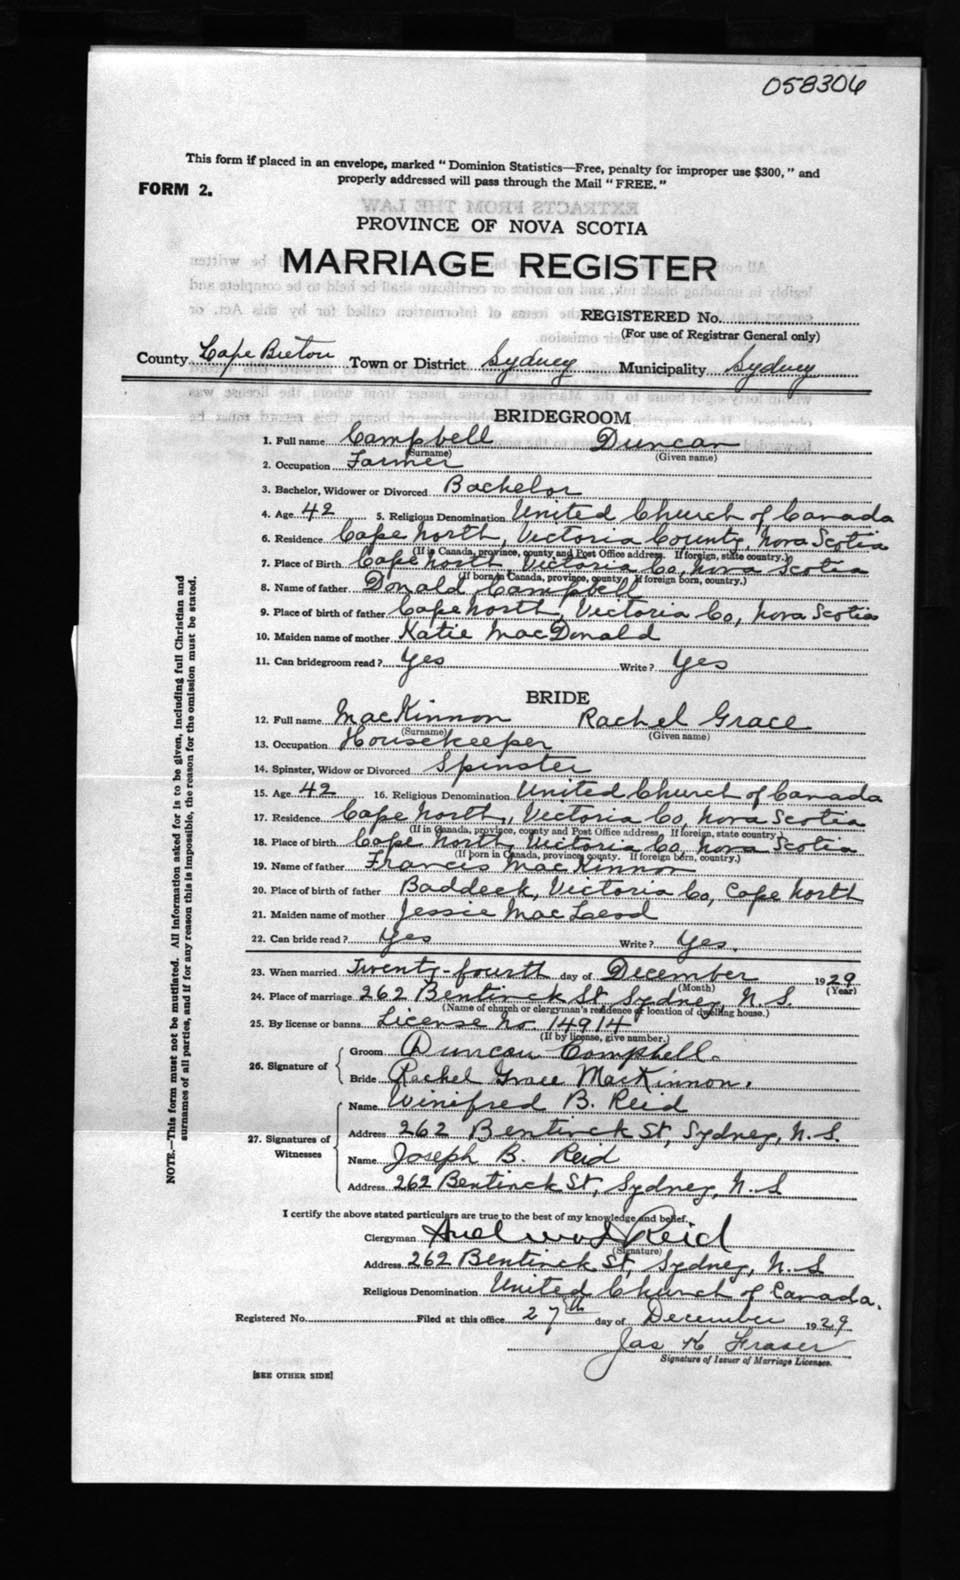 058306
This form if placed in an envelope, marked "Dominion Statistics—Free, penalty for improper use $300," and
properly addressed will pass through the Mail "FREE."
FORM 2.
PROVINCE OF NOVA SCOTIA
MARRIAGE REGISTER
REGISTERED No.
(For use of Registrar General only)
County Cape Breton Town or District Sydney Municipality Sydney
BRIDEGROOM
1. Full name Campbell Duncan
(Surname) (Given name)
2. Occupation Farmer
3. Bachelor, Widower or Divorced Bachelor
4. Age 42 5. Religious Denomination United Church of Canada
6. Residence Cape North, Victoria County, Nova Scotia
(If in Canada, province, county and Post Office address. If foreign, state country.)
7. Place of Birth Cape North, Victoria Co, Nova Scotia
(If born in Canada, province, county. If foreign born, country.)
8. Name of father Donald Campbell
9. Place of birth of father Cape North, Victoria Co, Nova Scotia
10. Maiden name of mother Katie MacDonald
11. Can bridegroom read? Yes Write? Yes
BRIDE
12. Full name MacKinnon Rachel Grace
(Surname) (Given name)
13. Occupation Housekeeper
14. Spinster, Widow or Divorced Spinster
15. Age 42 16. Religious Denomination United Church of Canada
17. Residence Cape North, Victoria Co, Nova Scotia
(If in Canada, province, county and Post Office address. If foreign, state country.)
18. Place of birth Cape North, Victoria Co, Nova Scotia
(If born in Canada, province, county. If foreign born, country.)
19. Name of father Francis MacKinnon
20. Place of birth of father Baddeck, Victoria Co, Cape North
21. Maiden name of mother Jessie MacLeod
22. Can bride read? Yes Write? Yes.
23. When married Twenty-fourth day of December 1929
(Month) (Year)
24. Place of marriage 262 Bentinck St, Sydney, N.S.
(Name of church or clergyman's residence or location of dwelling house.)
25. By license or banns License No. 14914
(If by license, give number.)
26. Signature of Groom Duncan Campbell.
Bride Rachel Grace MacKinnon.
27. Signatures of Witnesses
Name Winifred B. Reid
Address 262 Bentinck St, Sydney, N.S.
Name Joseph B. Reid
Address 262 Bentinck St, Sydney, N.S
I certify the above stated particulars are true to the best of my knowledge and belief.
Clergyman Reid
(Signature)
Address 262 Bentinck St, Sydney, N.S
Religious Denomination United Church of Canada.
Registered No. Filed at this office 27th day of December 1929
Jas K Fraser
Signature of Issuer of Marriage Licenses.
[SEE OTHER SIDE]
NOTE.—This form must not be mutilated. All information asked for is to be given, including full Christian and
surnames of all parties, and if for any reason this is impossible, the reason for the omission must be stated.